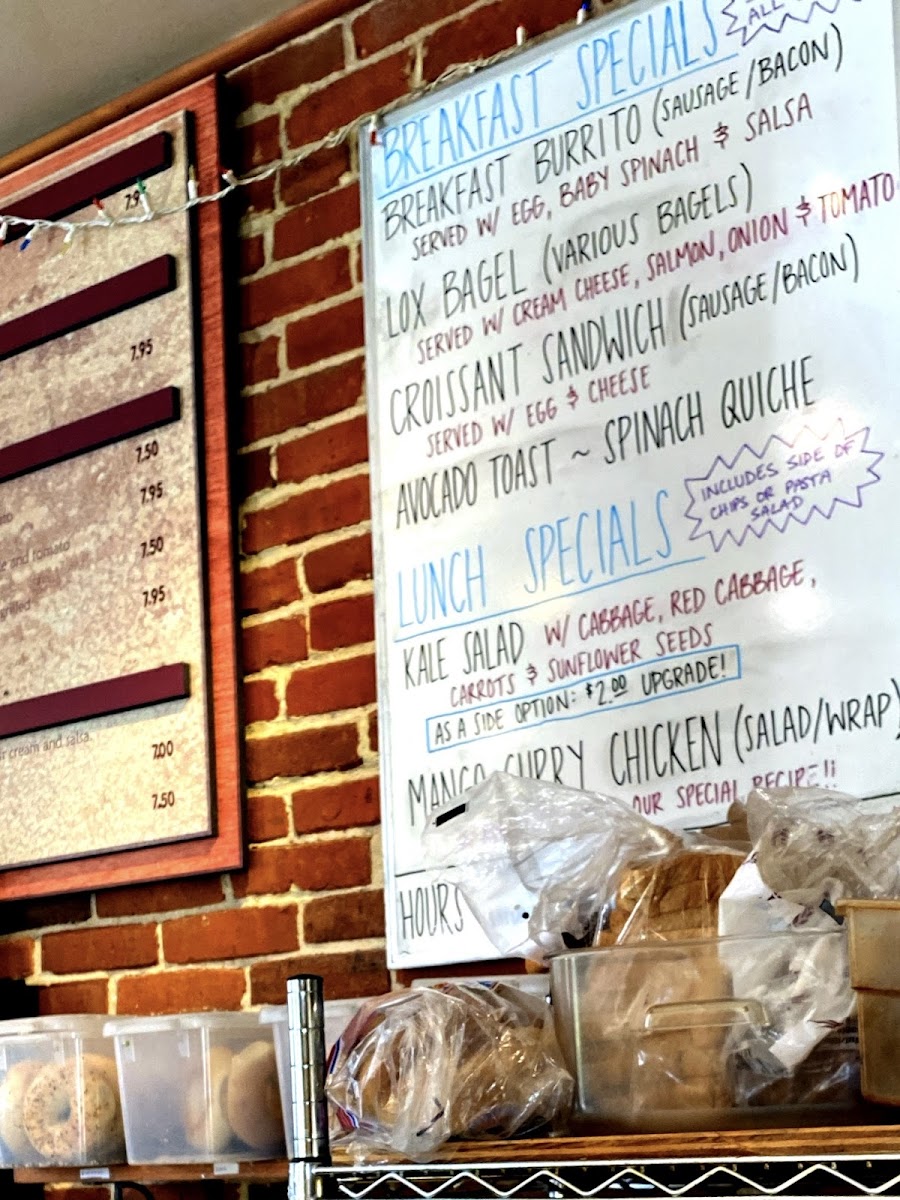 7.95
7.50
7.95
e and tomato
7.50
7.95
r cream and salsa.
7.00
7.50
ALL
BREAKFAST SPECIALS
BREAKFAST BURRITO (SAUSAGE/BACON)
SERVED W/ EGG, BABY SPINACH & SALSA
LOX BAGEL (VARIOUS BAGELS)
SERVED W/ CREAM CHEESE, SALMON, ONION & TOMATO
CROISSANT SANDWICH (SAUSAGE/BACON)
SERVED W/ EGG & CHEESE
AVOCADO TOAST ~ SPINACH QUICHE
INCLUDES SIDE OF
CHIPS OR PASTA
SALAD
LUNCH SPECIALS
KALE SALAD W/ CABBAGE, RED CABBAGE,
CARROTS & SUNFLOWER SEEDS
AS A SIDE OPTION: $2.00 UPGRADE!
MANGO CURRY CHICKEN (SALAD/WRAP)
OUR SPECIAL RECIPE!!
HOURS